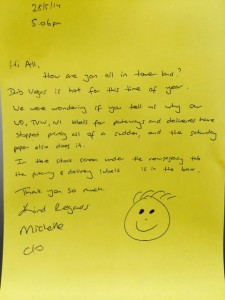 28/5/14
5:06pm
Hi All,
How are you all in tower land?
Dub Vegas is hot for this time of year.
We were wondering if you tell us why our
WD, TVW, NI labels for putaways and deliveries have
stopped printing all of a sudden, and the saturday
paper also does it.
In the stock screen under the newsagency tab
the putaway & delivery labels is in the box.
Thank you so much.
Kind Regards
Michelle